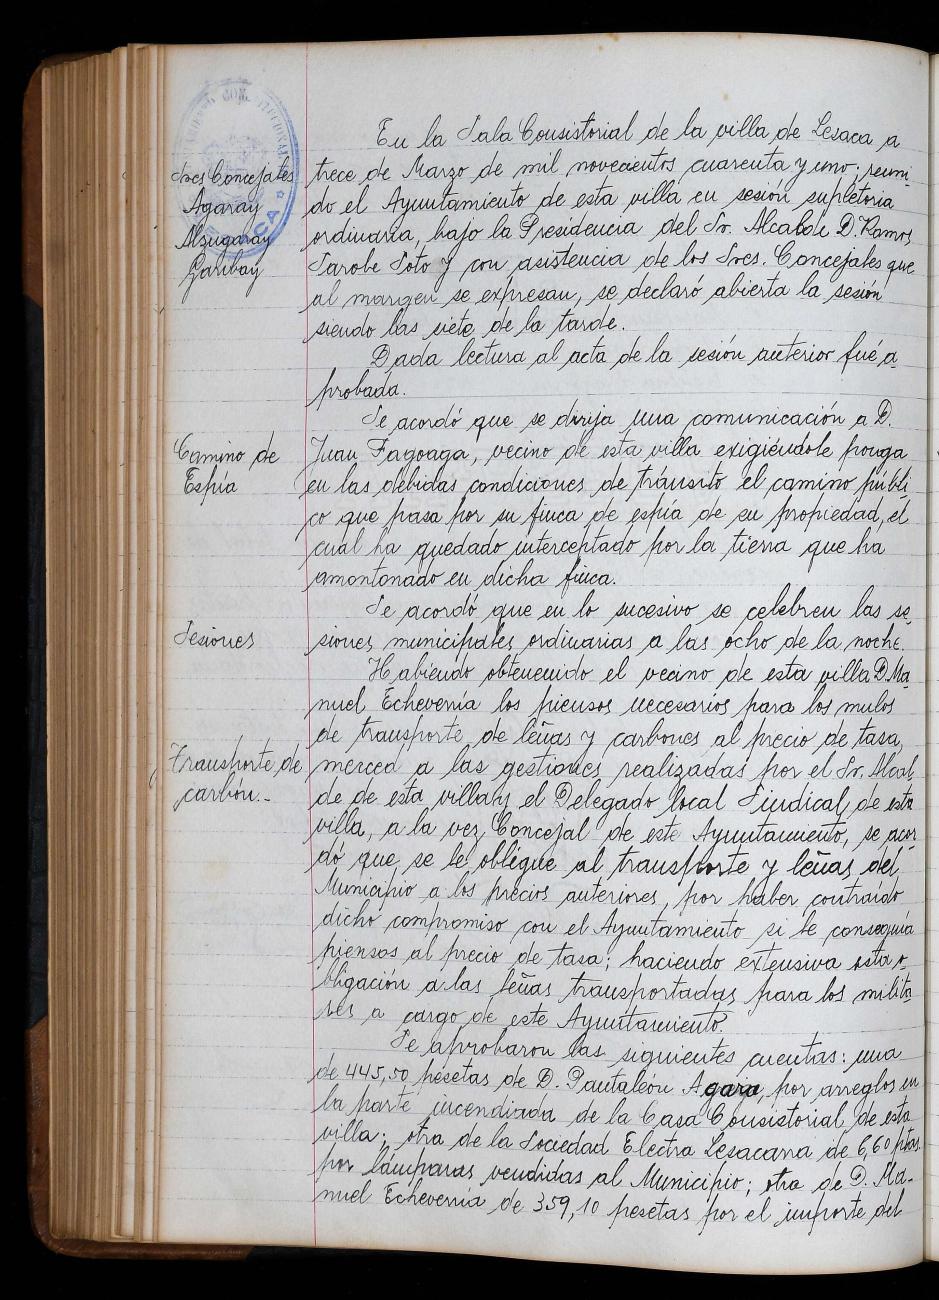 En la Sala Consistorial de la villa de Lesaca a
Sres Concejales
trece de Marzo de mil novecientos cuarenta y uno; reuni-
Agaray
do el Ayuntamiento de esta villa en sesión supletoria
Alzugaray
ordinaria, bajo la Presidencia del Sr. Alcalde D. Ramos
Garibay
Sarobe Soto y con asistencia de los Sres. Concejales que
al margen se expresan, se declaró abierta la sesión
siendo las siete de la tarde.
Dada lectura al acta de la sesión anterior fué a-
probada.
Se acordó que se dirija una comunicación a D.
Camino de
Espía
Juan Fagoaga, vecino de esta villa exigiéndole ponga
en las debidas condiciones de tránsito el camino públi-
co que pasa por su finca de espía de su propiedad, el
cual ha quedado interceptado por la tierra que ha
amontonado en dicha finca.
Se acordó que en lo sucesivo se celebren las se-
Sesiones
siones municipales ordinarias a las ocho de la noche.
Habiendo obtenenido el vecino de esta villa D. Ma-
nuel Echeverría los piensos necesarios para los mulos
de transporte de leñas y carbones al precio de tasa,
Transporte de
carbón.-
merced a las gestiones realizadas por el Sr. Alcal-
de de esta villa y el Delegado local Sindical, de esta
villa, a la vez Concejal de este Ayuntamiento, se acor-
dó que se le oblígue al transporte y leñas del
Municipio a los precios anteriores, por haber contraído
dicho compromiso con el Ayuntamiento si le conseguía
piensos al precio de tasa; haciendo extensiva esta o-
bligación a las leñas transportadas para los milita-
res a cargo de este Ayuntamiento.
Se aprobaron las siguientes cuentas: una
de 445,50 pesetas de D. Pantaleón Agara, por arreglos en
la parte incendiada de la Casa Consistorial de esta
villa; otra de la Sociedad Electra Lesacana de 6,60 ptas.
por lámparas vendidas al Municipio; otra de D. Ma-
nuel Echeverría de 359,10 pesetas por el importe del